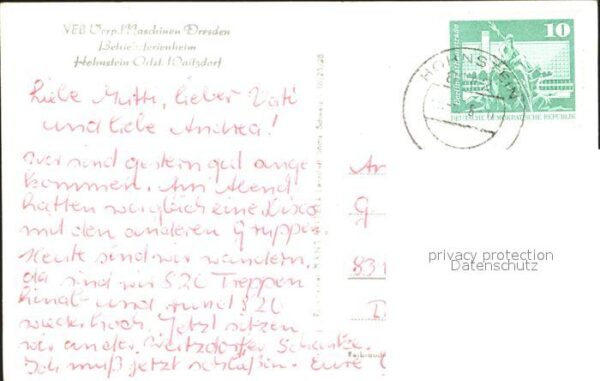 VEB Verp. Maschinen Dresden
Betriebsferienheim
Hohnstein Ortst. Waitzdorf
Liebe Mutti, lieber Vati
und liebe Andrea!
Wir sind gestern gut ange
kommen. Am Abend
hatten wir gleich eine Disco
mit den anderen Gruppen.
Heute sind wir wandern.
da sind wir 820 Treppen
hinab und rund 820
wieder hoch. Jetzt sitzen
wir an der Weitzdorfer Schänke.
Ich muß jetzt schließen. Eure
HOHNSTEIN
10
DEUTSCHE DEMOKRATISCHE REPUBLIK
G
831
D
privacy protection
Datenschutz